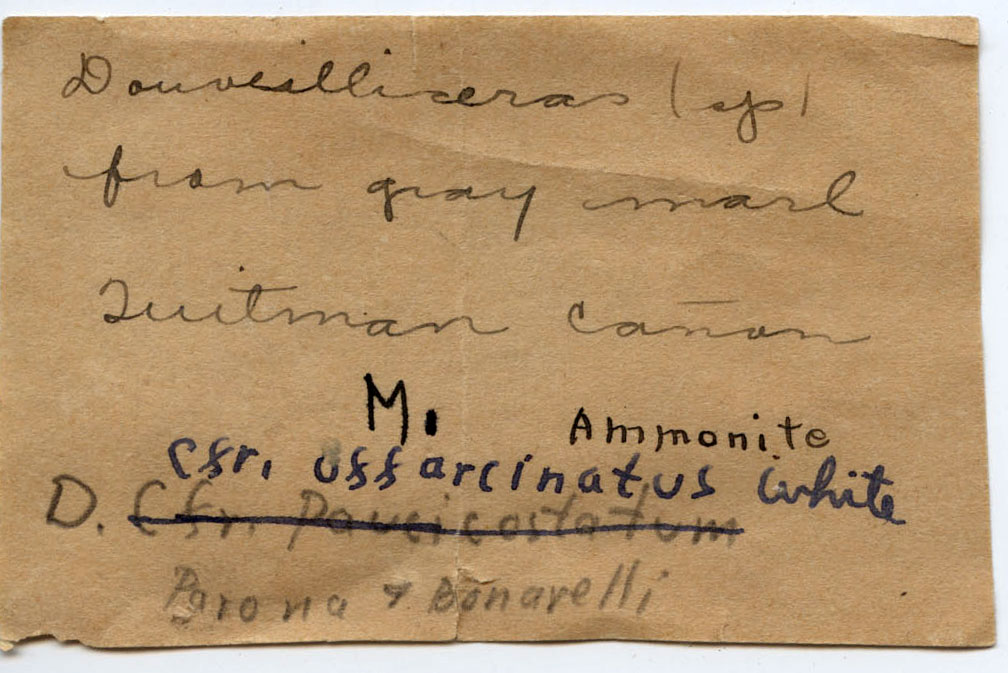 Douveilliceras (sp)
from gray marl
Quitman Cañon
M. Ammonite
Cfr. offarcinatus White
D. Cfr. Paucicostatum
Parona & Bonarelli